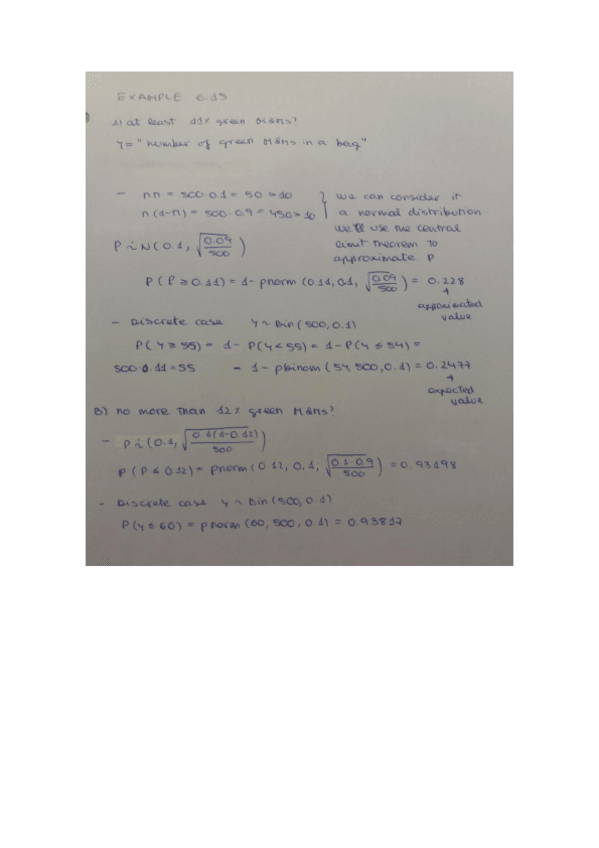 EXAMPLE 6.15
A) at least 11% green M&Ms?
Y = "number of green M&Ms in a bag"
- nπ = 500·0.1 = 50 > 10
n(1-π) = 500·0.9 = 450 > 10
we can consider it
a normal distribution
we'll use the central
limit theorem to
approximate P
P ∼ N(0.1, √(0.09/500))
P(P ≥ 0.11) = 1 - pnorm(0.11, 0.1, √(0.09/500)) = 0.228
approximated
value
- Discrete case Y ~ Bin(500, 0.1)
P(Y ≥ 55) = 1 - P(Y < 55) = 1 - P(Y ≤ 54) =
500·0.11 = 55 = 1 - pbinom(54, 500, 0.1) = 0.2477
expected
value
B) no more than 12% green M&Ms?
- P ∼ (0.1, √(0.1(1-0.12)/500))
P(P ≤ 0.12) = pnorm(0.12, 0.1, √(0.1·0.9/500)) = 0.93198
- Discrete case Y ~ Bin(500, 0.1)
P(Y ≤ 60) = pnorm(60, 500, 0.1) = 0.93812